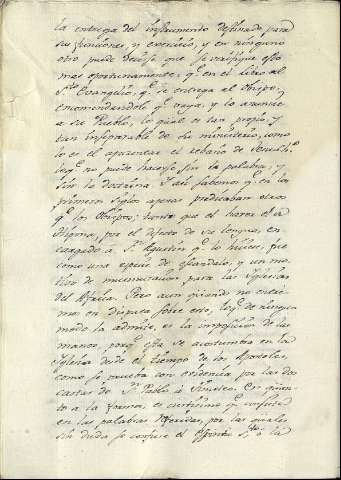 la entrega del instrumento destinado para
sus funciones, y exercicio, y en ninguno
otro puede decirse que se verifique esto
mas oportunamente, qe. en el libro del
Sto. Evangelio, qe. se entrega al Obispo, y
encomendandole qe. vaya, y lo anuncie
a su Pueblo, lo qual es tan propio, y
tan inseparable de su ministerio, como
lo es el apacentar el rebaño de
lo qe. no puede hacerse sin la palabra, y
sin la doctrina. Y asi sabemos qe. en los
primeros siglos apenas predicaban otros
qe. los Obispos; tanto que el haver el de
Hipona, por el defecto de su lengua, en-
cargado à Sn. Agustin qe. lo hiciese, fue
como una especie de escandalo, y un mo-
tivo de murmuracion para las Iglesias
del Africa. Pero aun quando no entre-
mos en disputa sobre esto, lo qe. de ningun
modo la admite, es la imposicion de las
manos, porqe. esta se acostumbra en la
Iglesia desde el tiempo de los Apostoles,
como se prueba con evidencia por las dos
cartas de Sn. Pablo à Timoteo. En quan-
to a la forma, es certisimo qe. consiste
en las palabras referidas, por las quales
sin duda se confiere el Espiritu Sto. à los